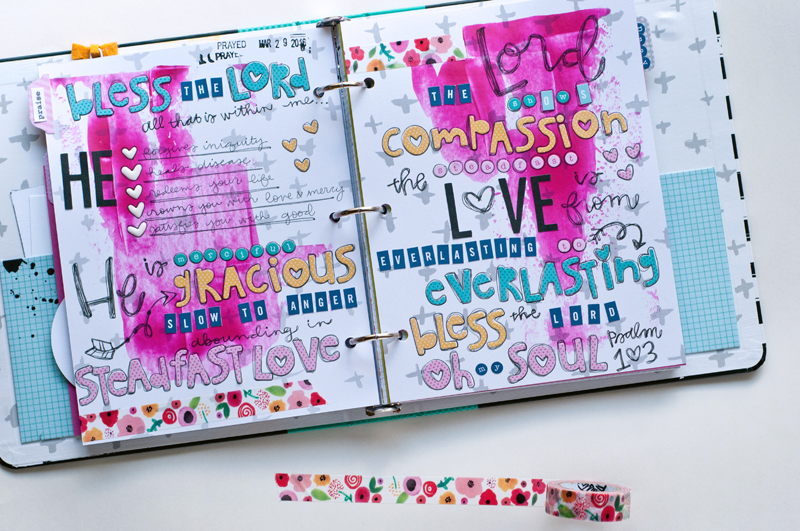 PRAYED MAR 29 2016
PRAYE
praise
bless THE LORD
all that is within me...
HE
forgives iniquity
heals disease
redeems your life
crowns you with love & mercy
satisfies you with good
He is merciful
gracious
SLOW TO ANGER
abounding in
STEADFAST LOVE
Lord
THE SHOWS
compassion
STEADFAST
the LOVE is from
EVERLASTING to
EVERLASTING
bless the LORD
oh my SOUL
psalm
103